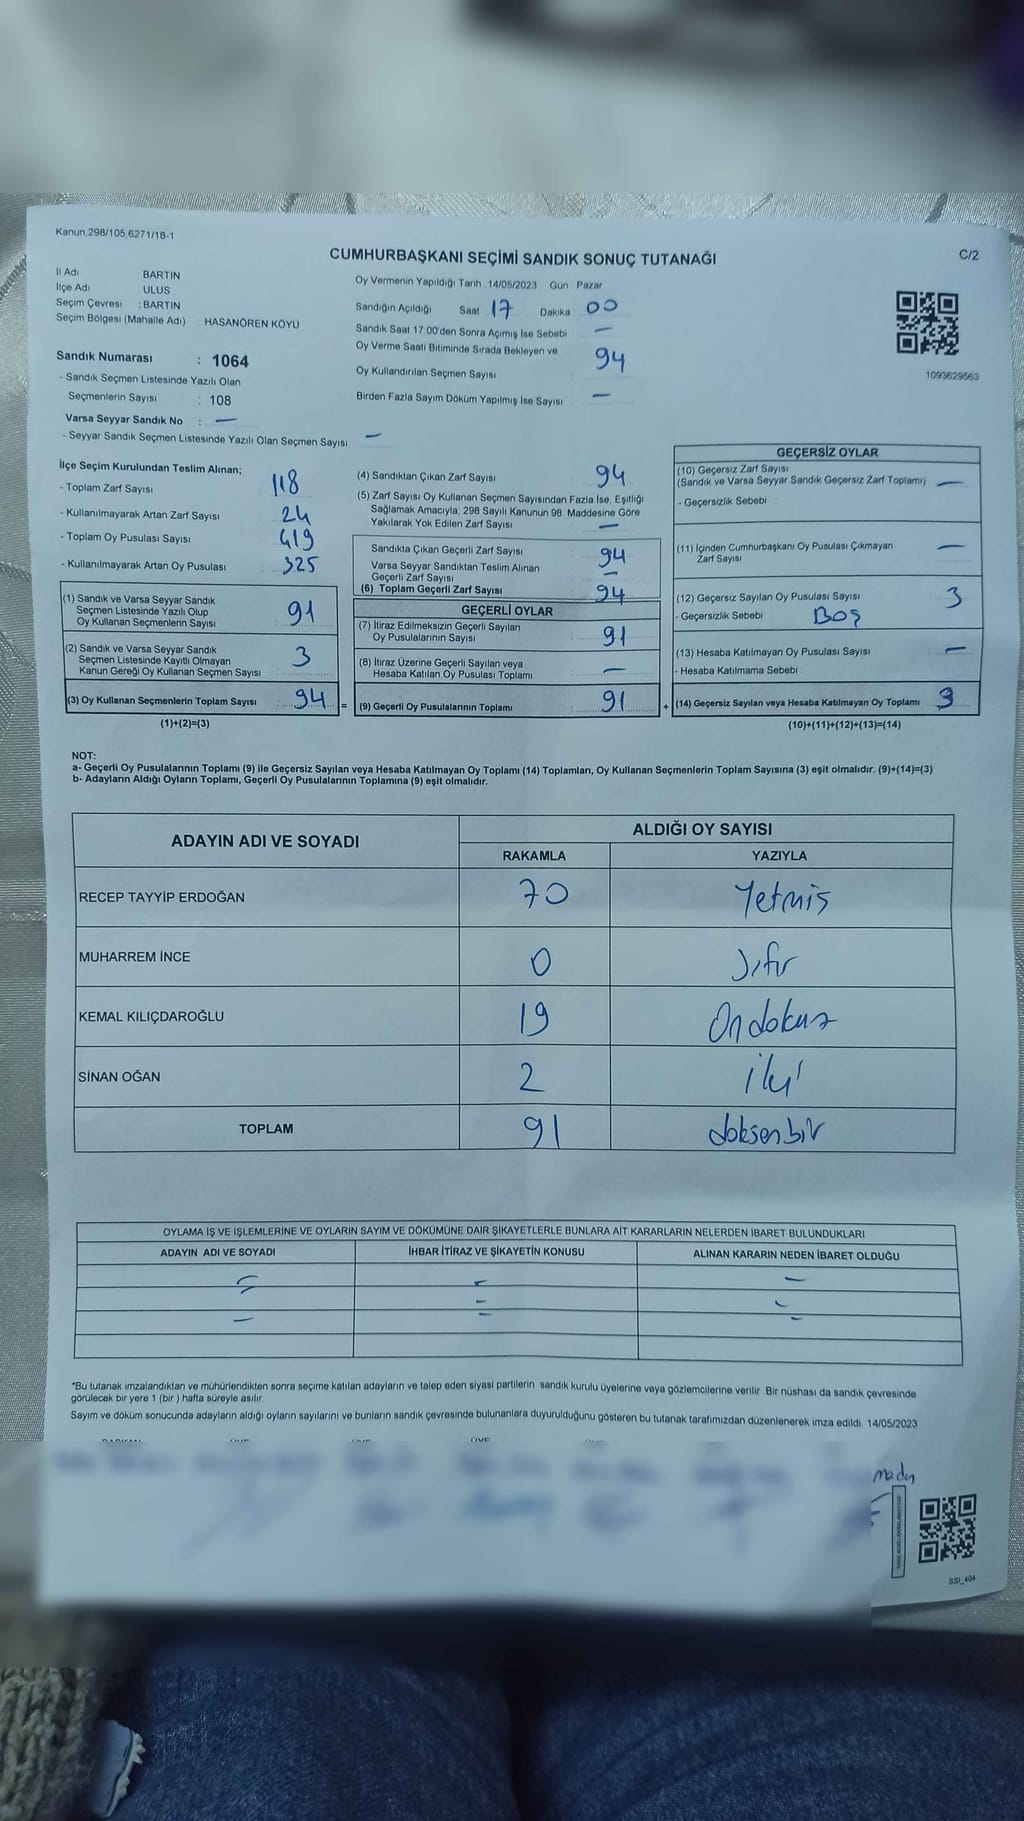 Kanun.298/105,6271/18-1
CUMHURBAŞKANI SEÇİMİ SANDIK SONUÇ TUTANAĞI
C/2
İl Adı BARTIN
İlçe Adı ULUS
Seçim Çevresi : BARTIN
Seçim Bölgesi (Mahalle Adı) : HASANÖREN KÖYÜ
Oy Vermenin Yapıldığı Tarih : 14/05/2023 Gün Pazar
Sandığın Açıldığı Saat 17 Dakika 00
Sandık Saat 17:00'den Sonra Açımış İse Sebebi —
Oy Verme Saati Bitiminde Sırada Bekleyen ve
Oy Kullandırılan Seçmen Sayısı 94
Birden Fazla Sayım Döküm Yapılmış İse Sayısı : —
1093629563
Sandık Numarası : 1064
- Sandık Seçmen Listesinde Yazılı Olan
Seçmenlerin Sayısı : 108
Varsa Seyyar Sandık No : —
- Seyyar Sandık Seçmen Listesinde Yazılı Olan Seçmen Sayısı : —
İlçe Seçim Kurulundan Teslim Alınan;
- Toplam Zarf Sayısı : 118
- Kullanılmayarak Artan Zarf Sayısı : 24
- Toplam Oy Pusulası Sayısı : 419
- Kullanılmayarak Artan Oy Pusulası : 325
(1) Sandık ve Varsa Seyyar Sandık
Seçmen Listesinde Yazılı Olup
Oy Kullanan Seçmenlerin Sayısı : 91
(2) Sandık ve Varsa Seyyar Sandık
Seçmen Listesinde Kayıtlı Olmayan
Kanun Gereği Oy Kullanan Seçmen Sayısı : 3
(3) Oy Kullanan Seçmenlerin Toplam Sayısı : 94
(1)+(2)=(3)
(4) Sandıktan Çıkan Zarf Sayısı : 94
(5) Zarf Sayısı Oy Kullanan Seçmen Sayısından Fazla İse, Eşitliği
Sağlamak Amacıyla, 298 Sayılı Kanunun 98. Maddesine Göre
Yakılarak Yok Edilen Zarf Sayısı : —
Sandıkta Çıkan Geçerli Zarf Sayısı : 94
Varsa Seyyar Sandıktan Teslim Alınan
Geçerli Zarf Sayısı : —
(6) Toplam Geçerli Zarf Sayısı : 94
GEÇERLİ OYLAR
(7) İtiraz Edilmeksizin Geçerli Sayılan
Oy Pusulalarının Sayısı : 91
(8) İtiraz Üzerine Geçerli Sayılan veya
Hesaba Katılan Oy Pusulası Toplamı : —
= (9) Geçerli Oy Pusulalarının Toplamı : 91
GEÇERSİZ OYLAR
(10) Geçersiz Zarf Sayısı
(Sandık ve Varsa Seyyar Sandık Geçersiz Zarf Toplamı) : —
- Geçersizlik Sebebi :
(11) İçinden Cumhurbaşkanı Oy Pusulası Çıkmayan
Zarf Sayısı : —
(12) Geçersiz Sayılan Oy Pusulası Sayısı : 3
- Geçersizlik Sebebi : Boş
(13) Hesaba Katılmayan Oy Pusulası Sayısı : —
- Hesaba Katılmama Sebebi :
+ (14) Geçersiz Sayılan veya Hesaba Katılmayan Oy Toplamı : 3
(10)+(11)+(12)+(13)=(14)
NOT:
a- Geçerli Oy Pusulalarının Toplamı (9) ile Geçersiz Sayılan veya Hesaba Katılmayan Oy Toplamı (14) Toplamları, Oy Kullanan Seçmenlerin Toplam Sayısına (3) eşit olmalıdır. (9)+(14)=(3)
b- Adayların Aldığı Oyların Toplamı, Geçerli Oy Pusulalarının Toplamına (9) eşit olmalıdır.
ADAYIN ADI VE SOYADI
ALDIĞI OY SAYISI
RAKAMLA YAZIYLA
RECEP TAYYİP ERDOĞAN 70 Yetmiş
MUHARREM İNCE 0 Sıfır
KEMAL KILIÇDAROĞLU 19 On dokuz
SİNAN OĞAN 2 iki
TOPLAM 91 doksen bir
OYLAMA İŞ VE İŞLEMLERİNE VE OYLARIN SAYIM VE DÖKÜMÜNE DAİR ŞİKAYETLERLE BUNLARA AİT KARARLARIN NELERDEN İBARET BULUNDUKLARI
ADAYIN ADI VE SOYADI İHBAR İTİRAZ VE ŞİKAYETİN KONUSU ALINAN KARARIN NEDEN İBARET OLDUĞU
*Bu tutanak imzalandıktan ve mühürlendikten sonra seçime katılan adayların ve talep eden siyasi partilerin sandık kurulu üyelerine veya gözlemcilerine verilir. Bir nüshası da sandık çevresinde
görülecek bir yere 1 (bir ) hafta süreyle asılır.
Sayım ve döküm sonucunda adayların aldığı oyların sayılarını ve bunların sandık çevresinde bulunanlara duyurulduğunu gösteren bu tutanak tarafımızdan düzenlenerek imza edildi. 14/05/2023
SSI_404